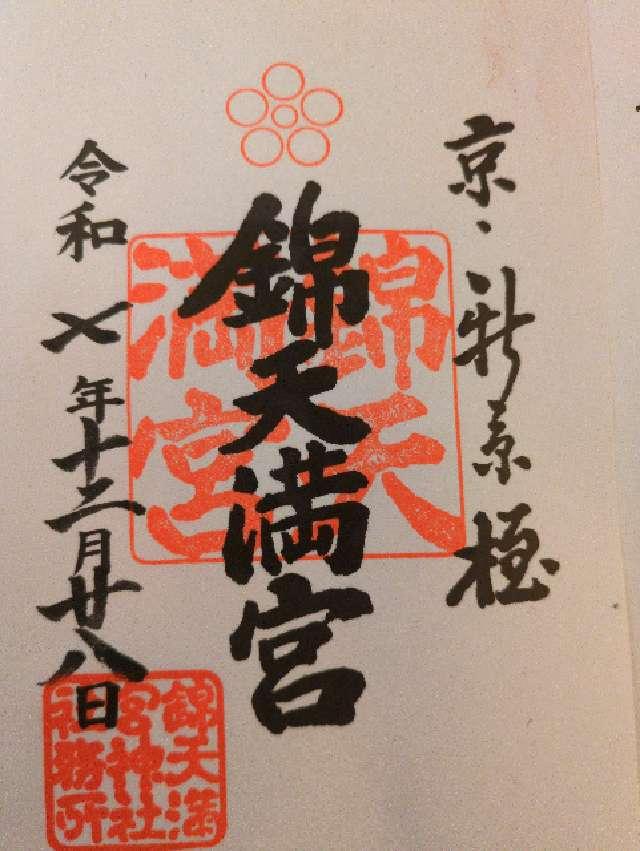 京・新京極
錦天満宮
錦天満宮
令和七年十二月廿八日
錦天満宮神社社務所